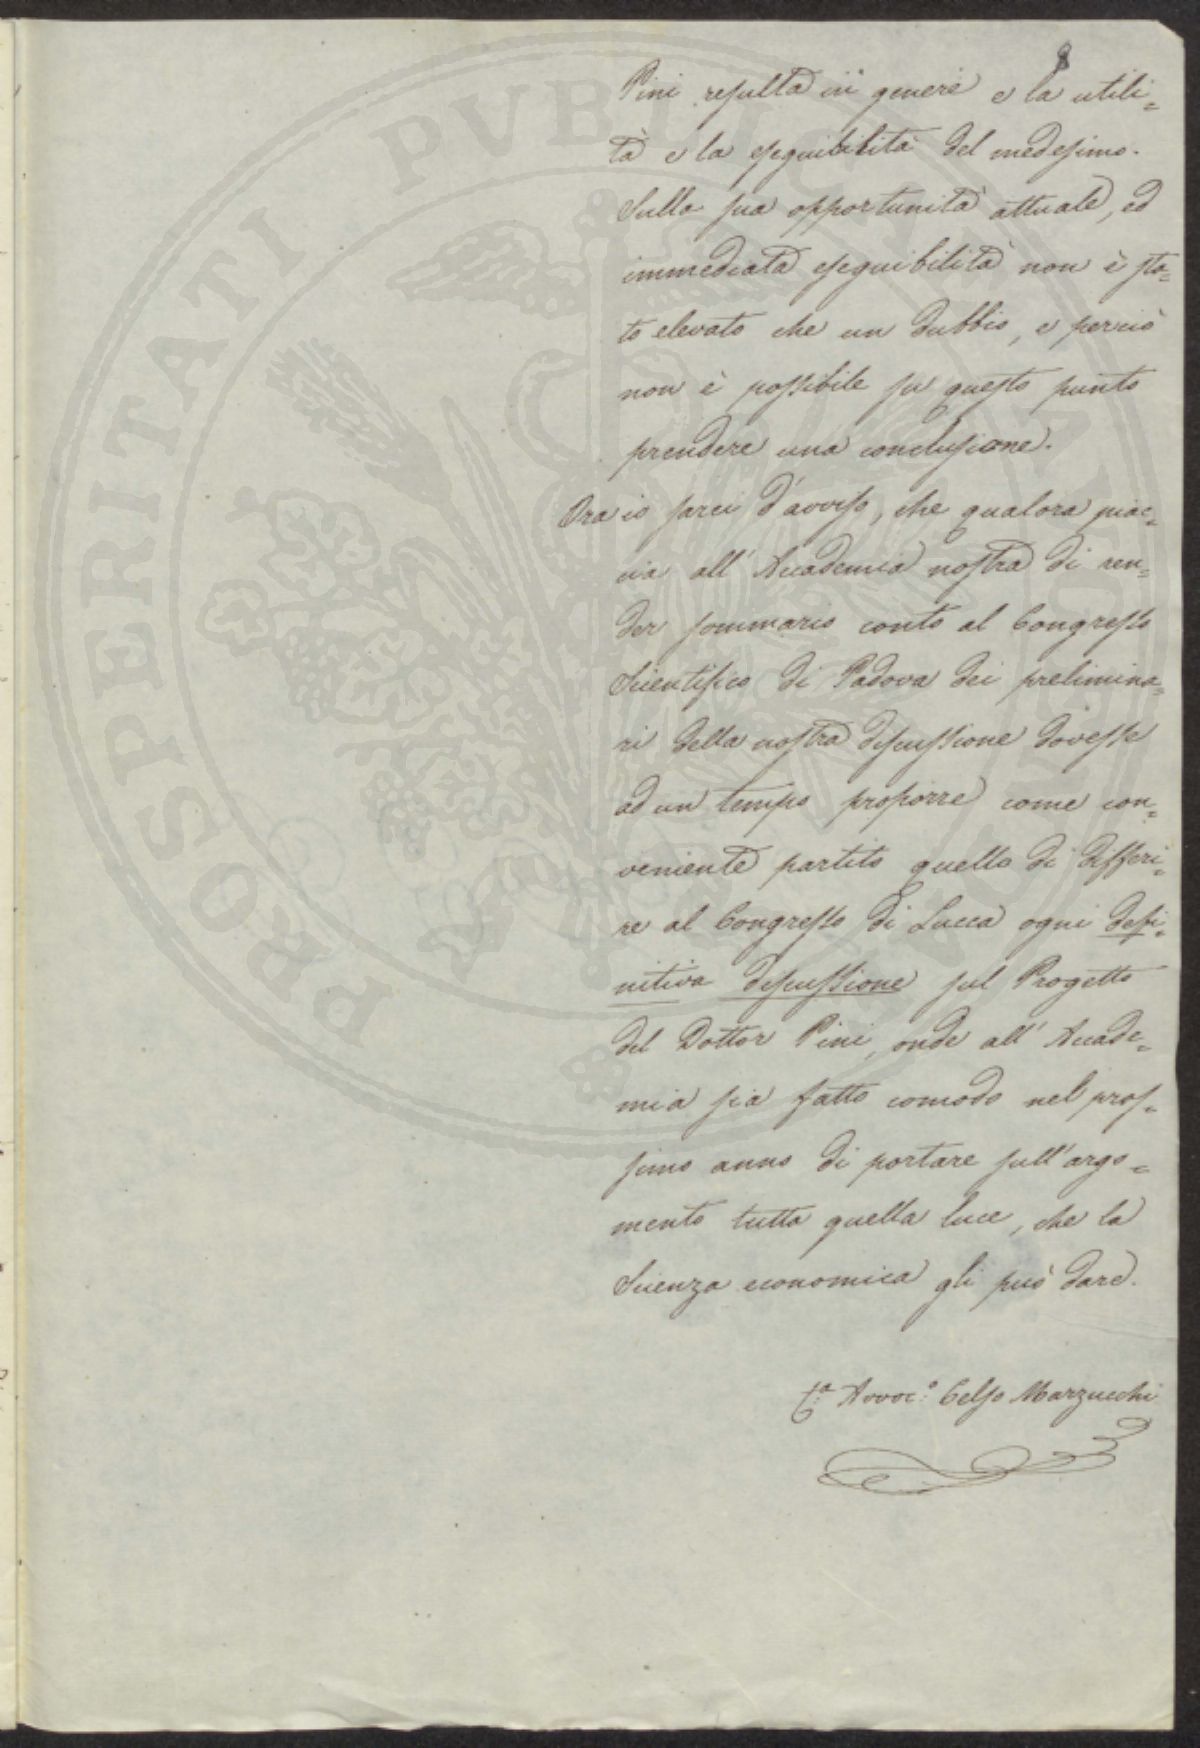 8
Pini resulta in genere e la utili=
tà e la eseguibilità del medesimo.
Sulla sua opportunità attuale, ed
immediata eseguibilità non è sta=
to elevato che un dubbio, e perciò
non è possibile su questo punto
prendere una conclusione.
Ora io sarei d'avviso, che qualora piac=
cia all'Accademia nostra di ren=
der sommario conto al Congresso
Scientifico di Padova dei prelimina=
ri della nostra discussione dovesse
ad un tempo proporre come con=
veniente partito quello di differi=
re al Congresso di Lucca ogni defi=
nitiva discussione sul Progetto
del Dottor Pini, onde all'Accade=
mia sia fatto comodo nel pros=
simo anno di portare sull'argo=
mento tutta quella luce, che la
Scienza economica gli può dare.
Avvoc.º Celso Marzucchi
PROSPERITATI PVBLICAE